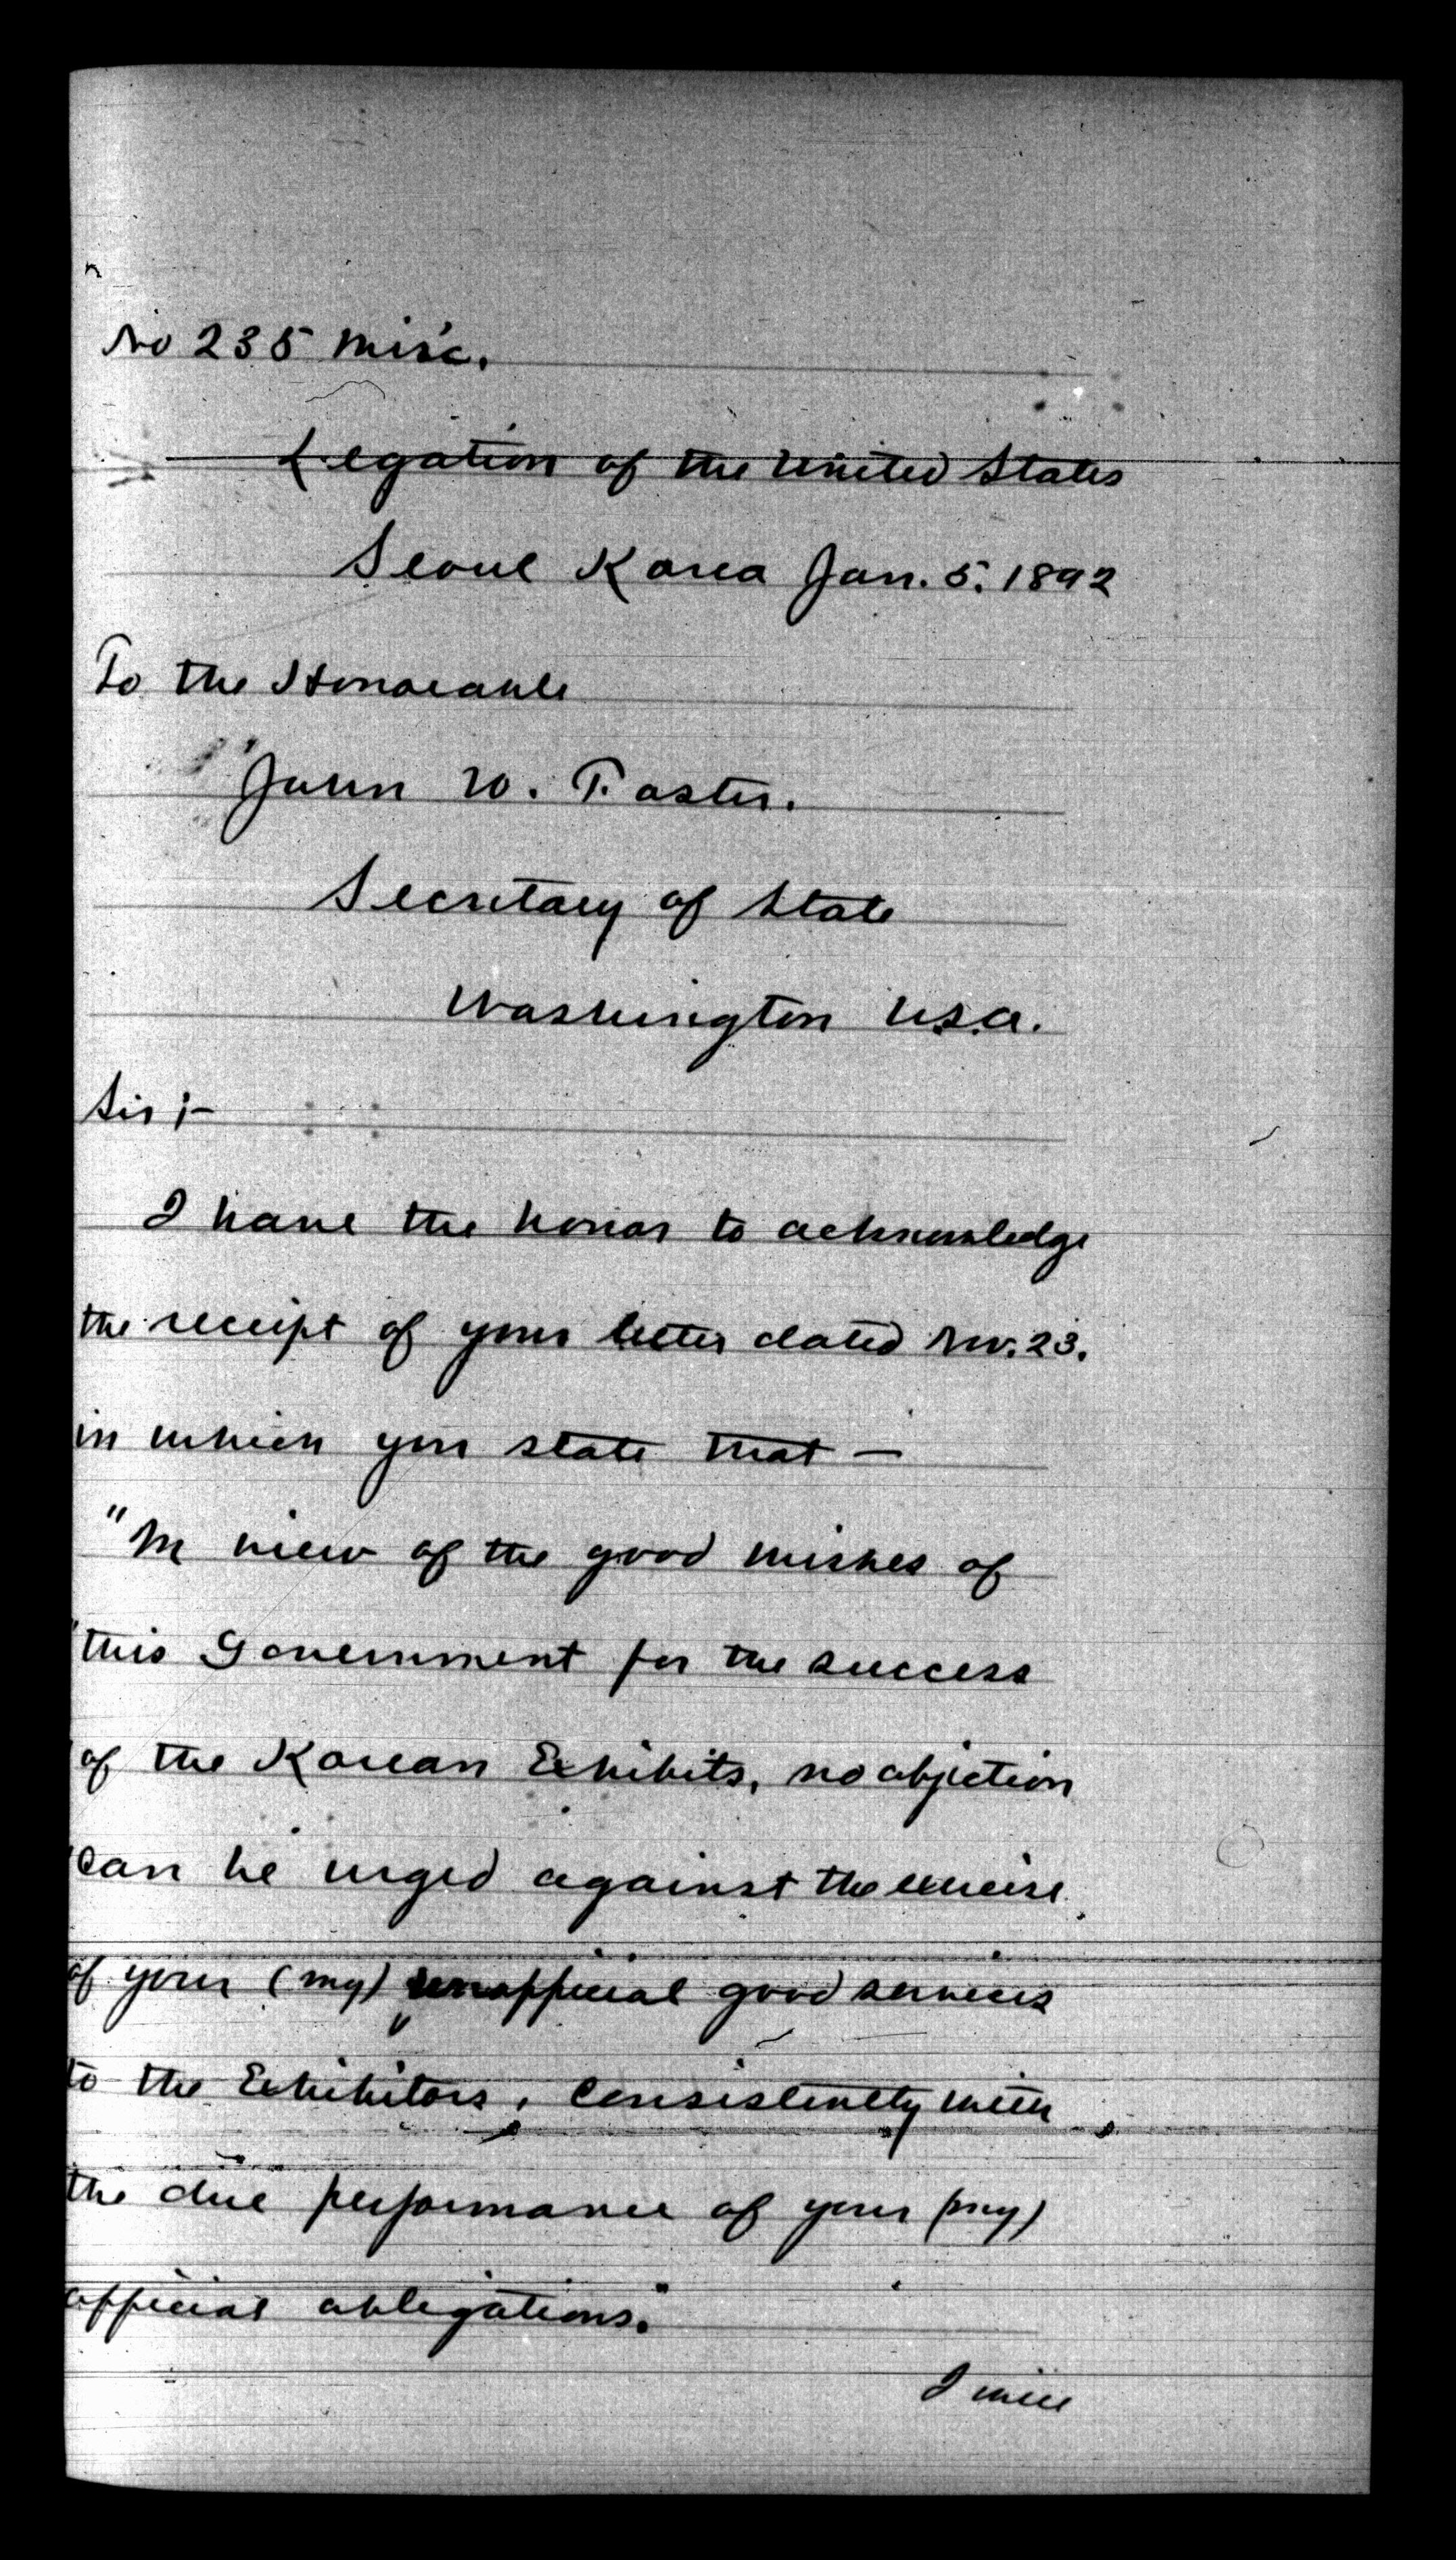 No 235 Misc.
Legation of the United States
Seoul Korea Jan. 5. 1892
To the Honorable
John W. Foster.
Secretary of State
Washington U.S.A.
Sir;-
I have the honor to acknowledge
the receipt of your letter dated Nov. 23.
in which you state that —
"In view of the good wishes of
"this Government for the success
"of the Korean Exhibits, no objection
"can be urged against the exercise
of your (my) unofficial good services
to the Exhibitors, consistently with
the due performance of your (my)
official obligations."
I will